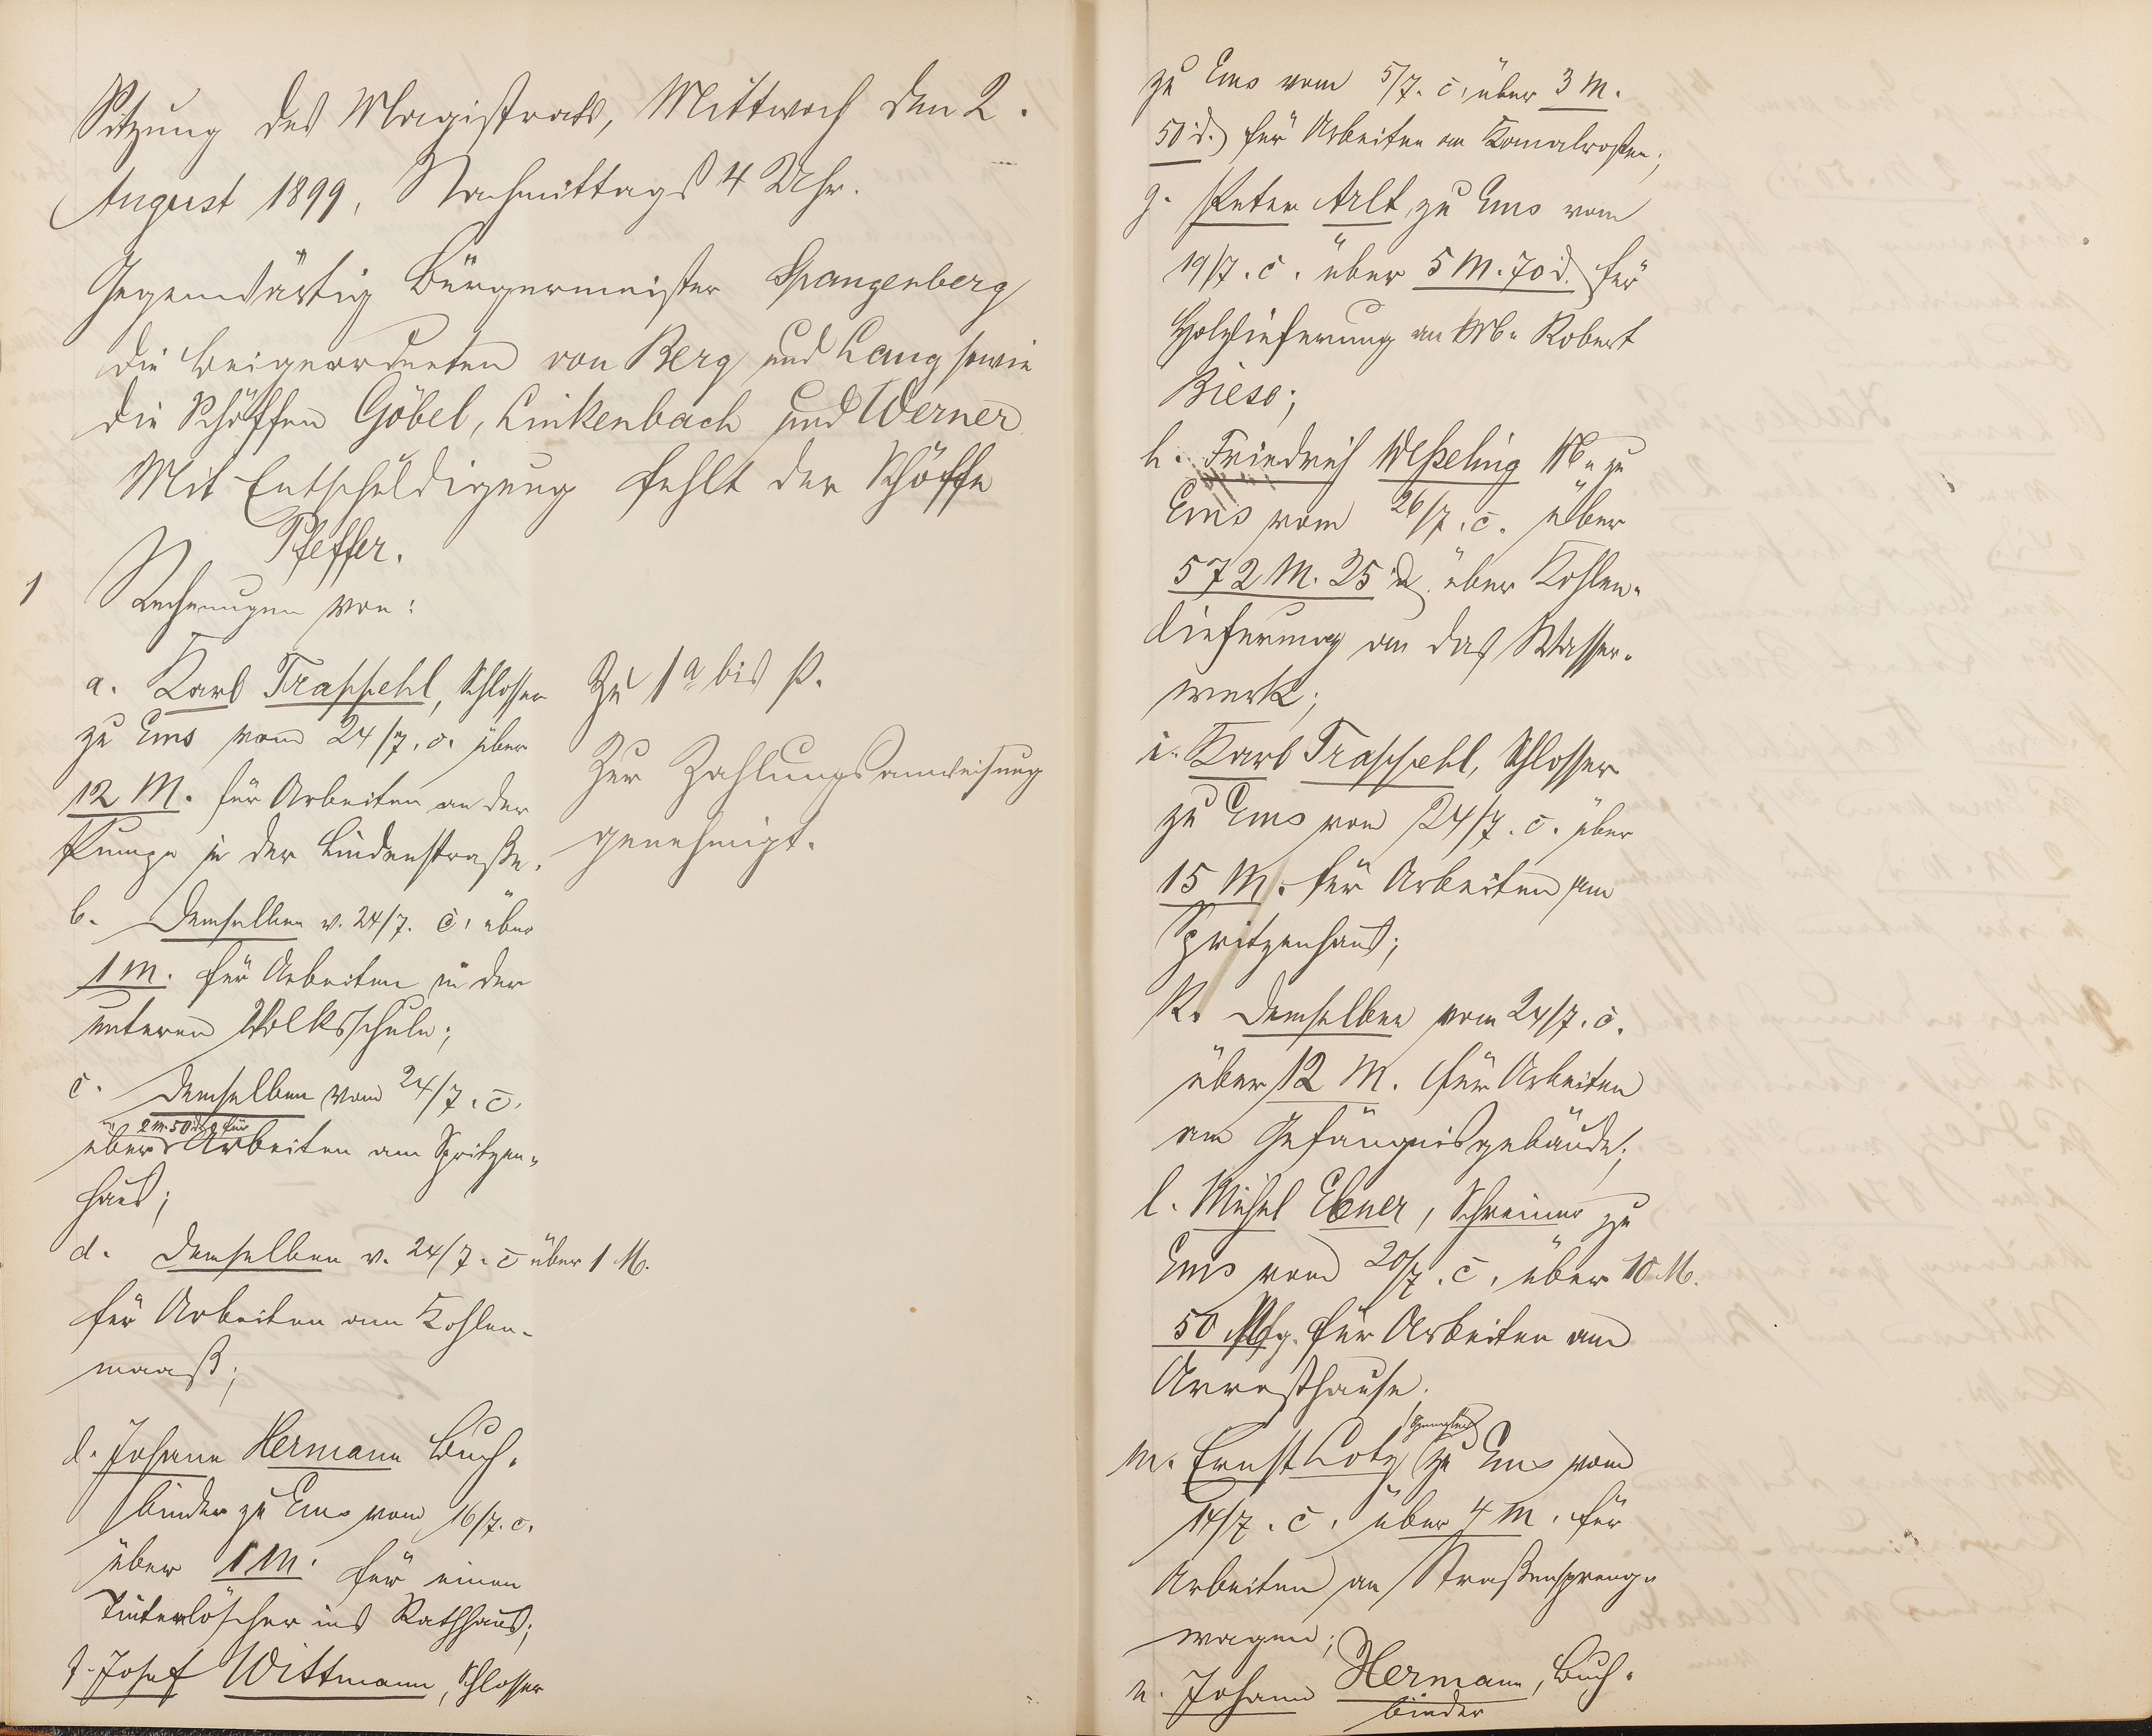 Sitzung des Magistrats, Mittwoch den 2.
August 1899, Nachmittags 4 Uhr.
Gegenwärtig Bürgermeister Spangenberg
die Beigeordneten von Berg und Lang sowie
die Schöffen Göbel, Linkenbach und Werner
Mit Entschuldigung fehlt der Schöffe
Pfeffer.
1 Rechnungen von:
a. Karl Trappehl, Schlosser
zu Ems vom 24/7. c. über
12 M. für Arbeiten an der
Pumpe in der Lindenstraße.
b. Demselben v. 24/7. c. über
1 M. für Arbeiten in der
unteren Volksschule;
c. Demselben vom 24/7. c.
2 M. 50 d. für
über Arbeiten am Spritzen-
haus;
d. Demselben v. 24/7. c über 1 M.
für Arbeiten am Kohlen-
maaß;
d. Johann Hermann Buch-
binder zu Ems vom 16/7. c.
über 1 M. für einen
Tintenlöscher ins Rathhaus;
f. Josef Wittmann, Schlosser
Zu 1 a bis p.
Zur Zahlungsanweisung
genehmigt.
zu Ems vom 5/7. c. über 3 M.
50 d. für Arbeiten an Kanalrosten;
g. Peter Arlt zu Ems vom
19/7. c. über 5 M. 70 d. für
Holzlieferung an Robert
Bieso;
h. Friedrich Weßeling zu
Ems vom 26/7. c. über
572 M. 25 d. über Kohlen-
lieferung an das Wasser-
werk;
i. Karl Trappehl, Schlosser
zu Ems vom 24/7. c. über
15 M. für Arbeiten am
Spritzenhaus;
k. Demselben vom 24/7. c.
über 12 M. für Arbeiten
am Gefängnisgebäude;
l. Michel Ebner, Schreiner zu
Ems vom 20/7. c. über 10 M.
50 Pfg. für Arbeiten am
Arresthause.
Spengler
m. Ernst Lotz zu Ems vom
14/7. c. über 4 M. für
Arbeiten an Straßenspreng-
wagen;
n. Johann Hermann, Buch-
binder